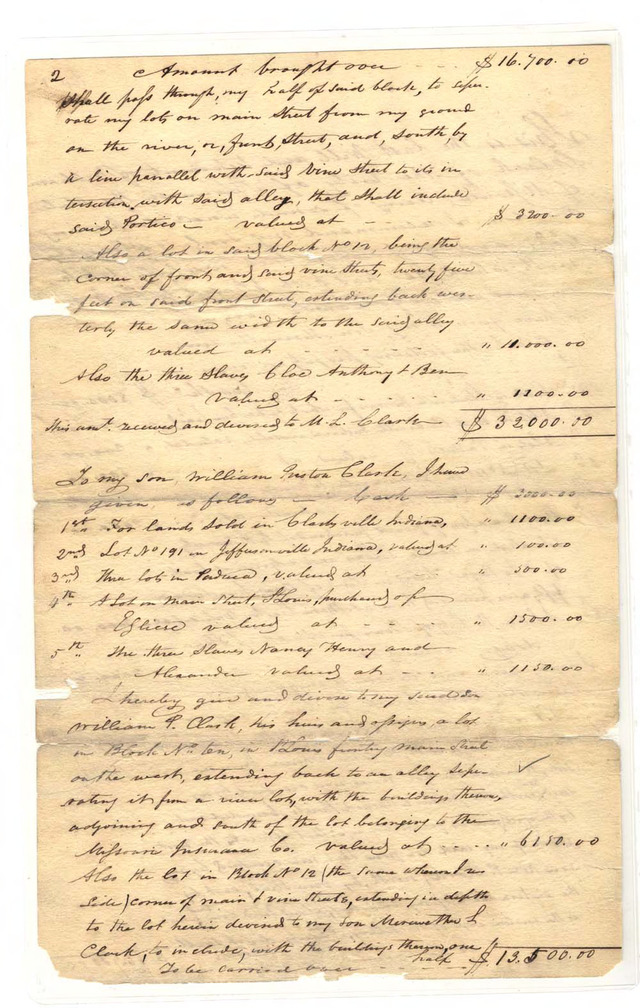 2 Amount brought over - - - $16.700.00
Shall pass through, my half of said block, to sepe-
rate my lots on main Street from my ground
on the river, or, front, Street, and, South, by
a line parallel with said Vine Street to its in
tersection with said alley, that Shall include
said Portico — valued at - - - $3200.00
Also a lot in said block No 12, being the
corner of front and said vine Streets, twenty five
feet on said front Street, extending back wes-
terly the same width to the said alley
valued at - - - - - " 11.000.00
Also the three Slaves Cloe Anthony & Ben
valued at - - - - " 1100.00
This amt. received and devised to M. L. Clark — $32000.00
To my son, William Preston Clark, I have
given, as follows — Cash — $3000.00
1st " For lands Sold in Clarksville Indiana, " 1100.00
2nd Lot No 191 in Jeffersonville Indiana, valued at " 100.00
3rd " three lots in Paduca, valued at " 500.00
4th A Lot on Main Street, St Louis, purchased of
valued at - - " 1500.00
5th " the three Slaves Nancy Henry and
Alexander valued at - - - " 1150.00
I hereby give and devise to my said son
William P. Clark, his heirs and assigns, a lot
in Block No ten, in St Louis fronting main Street
on the west, extending back to an alley sepe-
rating it from a river lot, with the buildings thereon,
adjoining and south of the lot belonging to the
Missouri Insurance Co. valued at - - - " 6150.00
Also the lot in Block No 12 (the same whereon I re
side) corner of main & vine Streets, extending in depth
to the lot herein devised to my son Meriwether L
Clark, to include, with the buildings thereon, one
half
To be carried over - - - $13.500.00